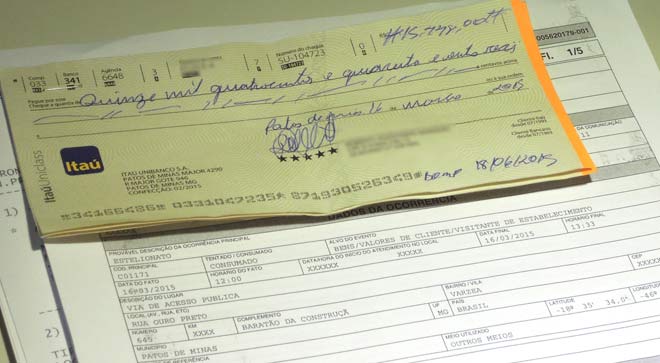 Comp Banco Agência 7 Número do cheque 0 #15.448,00#
033 341 6648 3 SU-104723
SU-104723
Pague por este
Cheque a quantia de Quinze mil quatrocentos e quarenta e oito reais
e centavos acima
ou à sua ordem
Patos de minas 16 março 2015
Itaú Uniclass
Itaú
ITAÚ UNIBANCO S.A.
PATOS DE MINAS MAJOR 4290
R MAJOR GOTE 946
PATOS DE MINAS MG
CONFECÇÃO: 02/2015
Cliente Itaú
desde 07/1993
Cliente Bancário
desde 07/1993
18/06/2015
005620179-001
FL. 1/5
DADOS DA OCORRÊNCIA
PROVÁVEL DESCRIÇÃO DA OCORRÊNCIA PRINCIPAL ALVO DO EVENTO
ESTELIONATO BENS/VALORES DE CLIENTE/VISITANTE DE ESTABELECIMENTO
CÓD. PRINCIPAL TENTADO / CONSUMADO DATA/HORA DO INÍCIO DO ATENDIMENTO NO LOCAL DATA FINAL HORÁRIO FINAL
C01171 CONSUMADO XXXXXX 16/03/2015 13:33
DATA DO FATO HORÁRIO DO FATO
16/03/2015 12:00 XXXXXX
DESCRIÇÃO DO LUGAR
VIA DE ACESSO PUBLICA
LOCAL (AV., RUA, ETC) BAIRRO / VILA CEP
RUA OURO PRETO VARZEA
NÚMERO KM COMPLEMENTO UF PAÍS LATITUDE LONGITUDE
645 XXXX BARATÃO DA CONSTRUÇÃ MG BRASIL -18° 35' 34,0" -46°
MUNICÍPIO MEIO UTILIZADO
PATOS DE MINAS OUTROS MEIOS